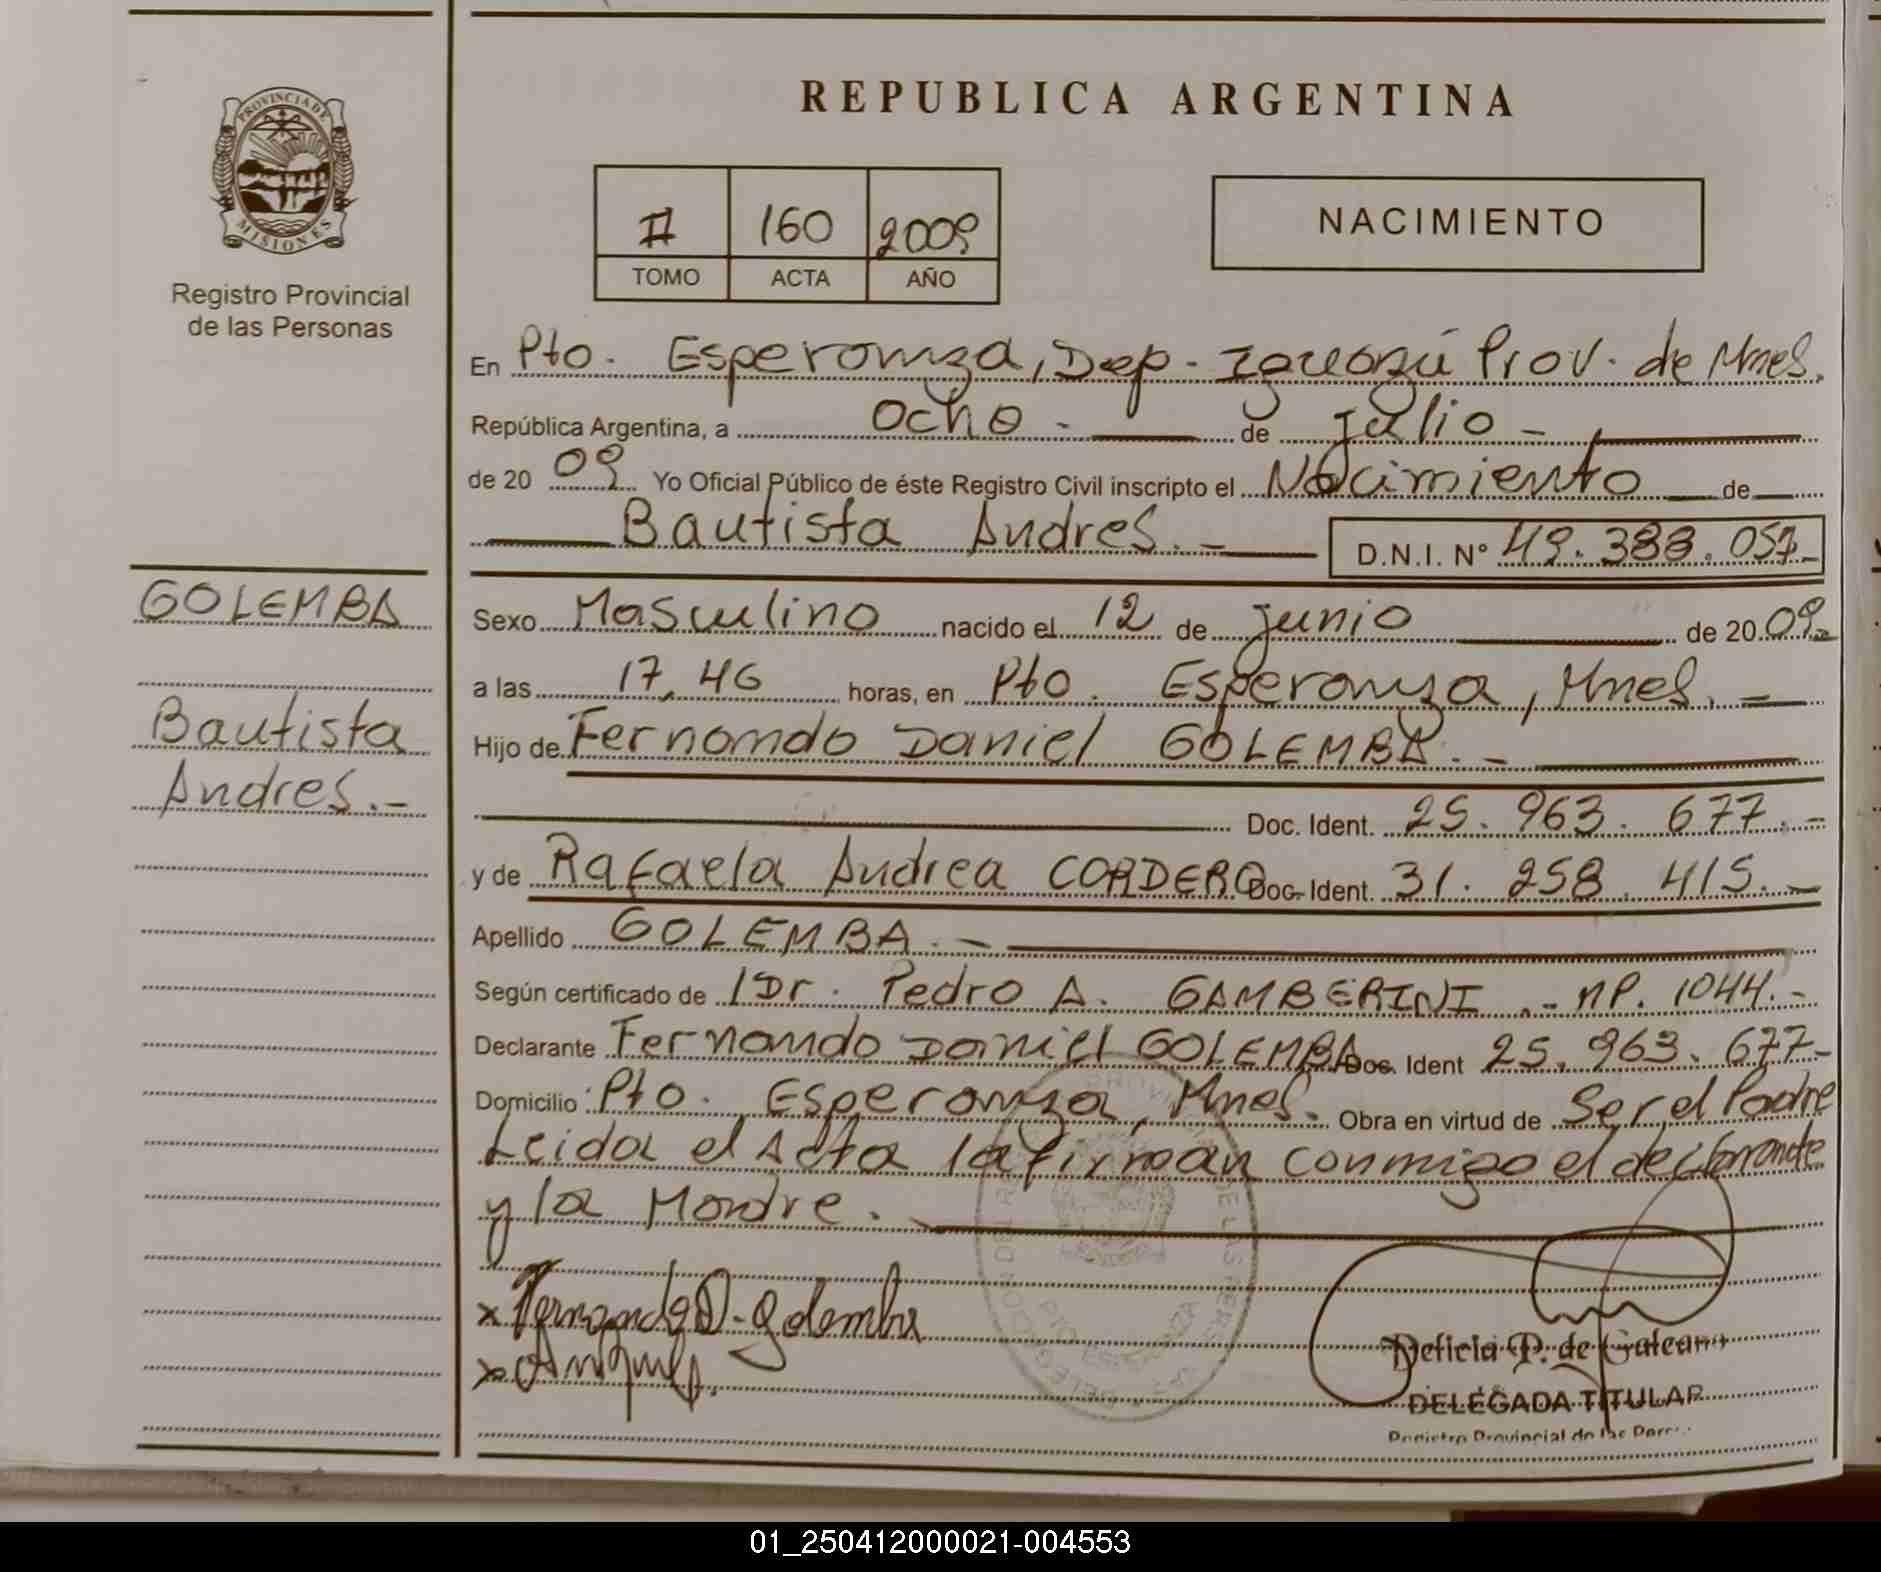 REPUBLICA ARGENTINA
PROVINCIA DE
MISIONES
Registro Provincial
de las Personas
II 160 2009
TOMO ACTA AÑO
NACIMIENTO
En Pto. Esperanza, Dep. Iguazú Prov. de Mnes.
República Argentina, a Ocho - de julio -
de 20 09 Yo Oficial Público de éste Registro Civil inscripto el Nacimiento de
Bautista Andres. - D.N.I. Nº 49.388.057-
GOLEMBA
Bautista
Andres.-
Sexo Masculino nacido el 12 de junio de 20 09-
a las 17,46 horas, en Pto. Esperanza, Mnes. -
Hijo de Fernando Daniel GOLEMBA. -
Doc. Ident. 25.963.677.-
y de Rafaela Andrea CORDERO Doc. Ident. 31.258.415.-
Apellido GOLEMBA. -
Según certificado de Dr. Pedro A. GAMBERINI .- MP. 1044.-
Declarante Fernando Daniel GOLEMBA Doc. Ident 25.963.677-
Domicilio: Pto. Esperanza Mnes. Obra en virtud de Ser el Padre
Leida el Acta la firman conmigo el declarante
y la Madre.
x Fernando D. Golemba
x
Deficia P. de Galeano
DELEGADA TITULAR
Registro Provincial de las Pers
01_250412000021-004553